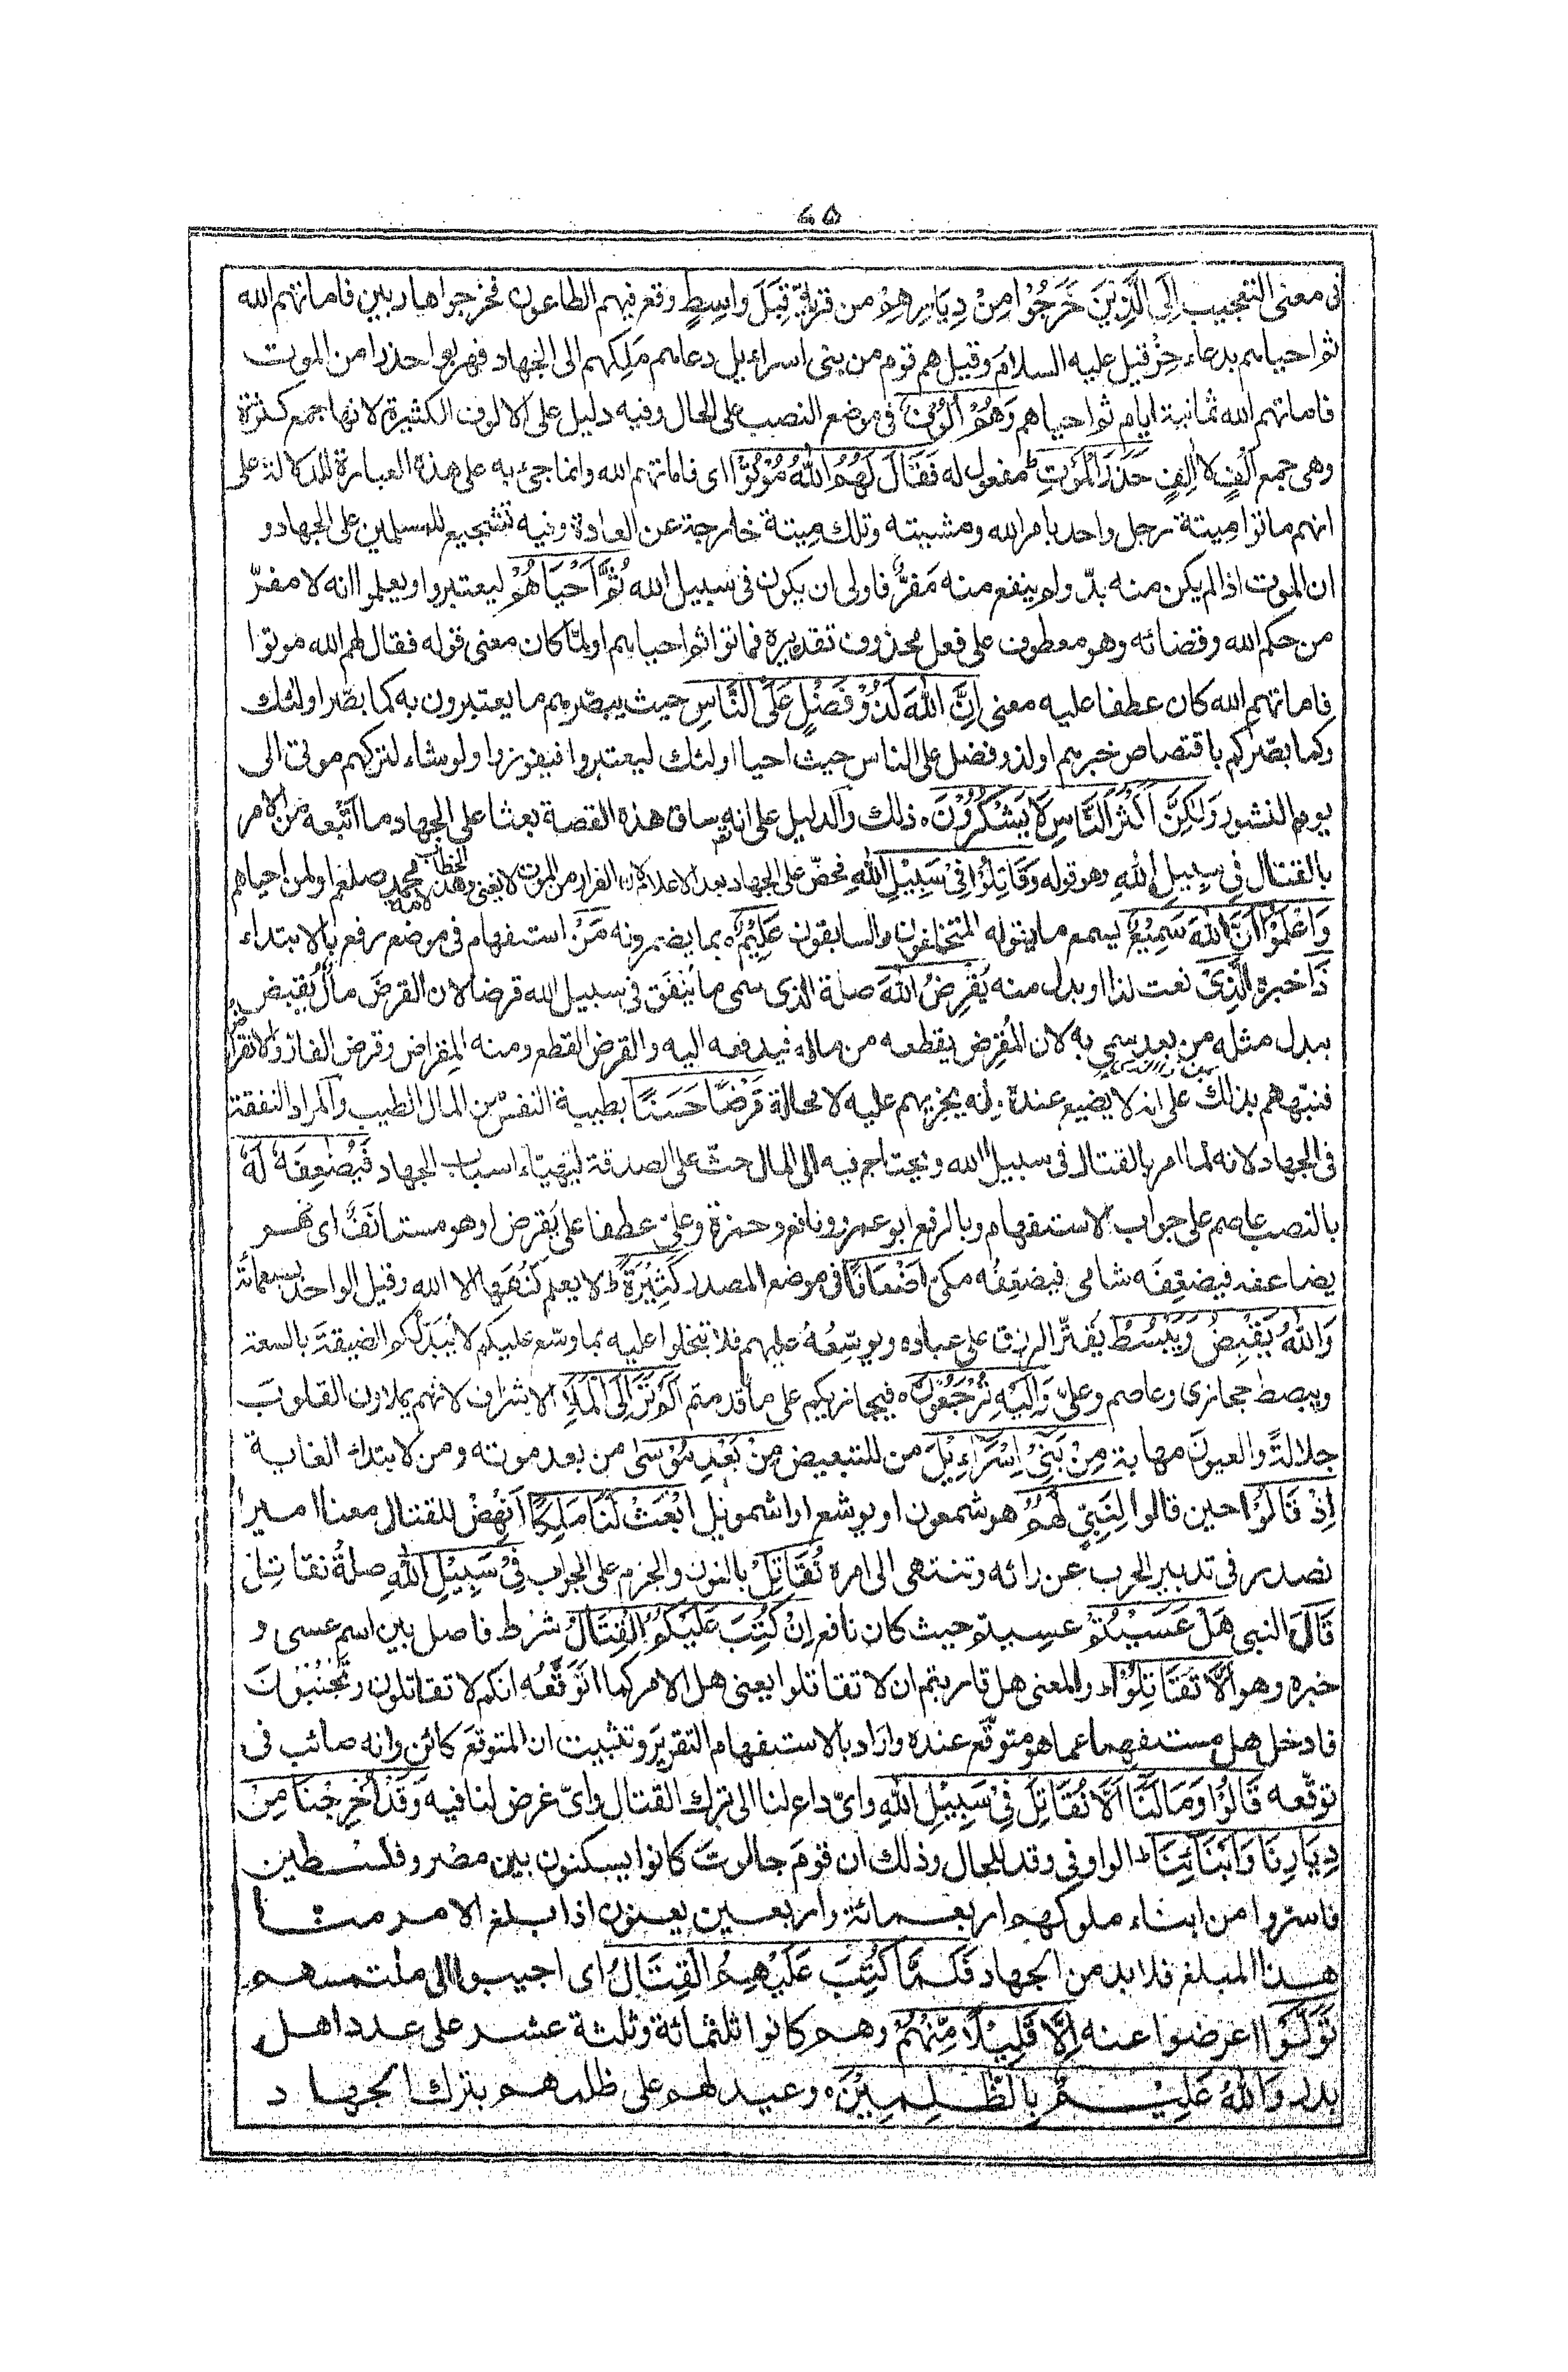 ٦٥
فى معنى التعجيب اِلَى الَّذِيْنَ خَرَجُوْا مِنْ دِيَارِهِمْ من قرية قِبَلَ واسِطٍ وقع فيهم الطاعون فخرجوا هاربين فاماتهم الله
ثم احياهم بدعاء حِزْقيل عليه السلام وقيل هم قوم من بنى اسراءيل دعاهم مَلِكهم الى الجهاد فهربوا حذرا من الموت
فاماتهم الله ثمانية ايام ثم احياهم وَهُمْ اُلُوْفٌ فى موضع النصب على الحال وفيه دليل على الالوف الكثيرة لانها جمع كثرة
وهى جمع اَلْفٍ لا اٰلِفٍ حَذَرَ الْمَوْتِ مفعول له فَقَالَ لَهُمُ اللّٰهُ مُوْتُوْا اى فاماتهم الله وانما جئ به على هذه العبارة للدلالة على
انهم ماتوا مِيتة رجل واحد بامر الله ومشيته وتلك مِيتة خارجة عن العادة وفيه تشجيع للمسلمين على الجهاد و
ان الموت اذا لم يكن منه بدّ ولم ينفع منه مَفرٌّ فاولى ان يكون فى سبيل الله ثُمَّ اَحْيَاهُمْ ليعتبروا ويعلموا انه لا مفرّ
من حكم الله وقضائه وهو معطوف على فعل محذوف تقديره فماتوا ثم احياهم او لمّا كان معنى قوله فقال لهم الله موتوا
فاماتهم الله كان عطفا عليه معنى اِنَّ اللّٰهَ لَذُوْ فَضْلٍ عَلَى النَّاسِ حيث يبصّرهم ما يعتبرون به كما بصّر اولئك
وكما بصّركم باقتصاص خبرهم او لذو فضل على الناس حيث احيا اولئك ليعتبروا فيفوزوا ولو شاء لتركهم موتى الى
يوم النشور وَلٰكِنَّ اَكْثَرَ النَّاسِ لَا يَشْكُرُوْنَ ذلك والدليل على انه ساق هذه القصة بعثا على الجهاد ما اَتْبَعه من الامر
بالقتال فى سبيل الله وهو قوله وَقَاتِلُوْا فِىْ سَبِيْلِ اللّٰهِ فحضّ على الجهاد بعد الاعلام لان الفرار من الموت لا يغنى وهذا الخطاب لامة محمد صلعم او لمن احياهم
وَاعْلَمُوْا اَنَّ اللّٰهَ سَمِيْعٌ يسمع ما يقوله المتخلفون والسابقون عَلِيْمٌ بما يضمرونه مَنْ استفهام فى موضع رفع بالابتداء
ذَا خبره الَّذِىْ نعت لذا او بدل منه يُقْرِضُ اللّٰهَ صلة الذى سمى ما يُنْفَق فى سبيل الله قرضا لان القرض مالٌ يُقبض
ببدل مثله من بعد سمى به لان المُقرِض يقطعه من ماله فيدفعه اليه والقرض القطع ومنه المِقراض وقرض الفار والانقراض
فنبّههم بذلك على انه لا يضيع عنده وانه يجزيهم عليه لا محالة قَرْضًا حَسَنًا بطيبة النفس من المال الطيب والمراد النفقة
فى الجهاد لانه لما امر بالقتال فى سبيل الله ويحتاج فيه الى المال حثّ على الصدقة ليتهيّاء اسباب الجهاد فَيُضٰعِفَهٗ لَهٗ
بالنصب عاصم على جواب الاستفهام وبالرفع ابو عمرو ونافع وحمزة وعلىّ عطفا على يقرض او هو مستانَفٌ اى فهو
يضاعفه فيضعِّفَه شامى فيضعِّفُه مكىّ اَضْعَافًا فى موضع المصدر كَثِيْرَةً لا يعلم كُنهَها الا الله وقيل الواحد بسبعمائة
وَاللّٰهُ يَقْبِضُ وَيَبْسُطُ يقتّر الرزق على عباده ويوسّعُهُ عليهم فلا تبخلوا عليه بما وسّع عليكم لا يُبَدِّلْكم الضيقةَ بالسعة
ويبصط حجازى وعاصم وعلىّ وَاِلَيْهِ تُرْجَعُوْنَ فيجازيكم على ما قدمتم اَلَمْ تَرَ اِلَى الْمَلَاِ الاشراف لانهم يملاون القلوبَ
جلالةً والعيونَ مهابة مِنْ بَنِىْ اِسْرَاءِيْلَ من للتبعيض مِنْ بَعْدِ مُوْسٰى من بعد موته ومن لابتداء الغاية
اِذْ قَالُوْا حين قالوا لِنَبِىٍّ لَهُمُ هو شمعون او يوشع او اشمويل ابْعَثْ لَنَا مَلِكًا اَنهِضْ للقتال معنا اميرا
نصدر فى تدبير الحرب عن رائه وننتهى الى امره نُقَاتِلْ بالنون والجزم على الجواب فِىْ سَبِيْلِ اللّٰهِ صلةُ نقاتل
قَالَ النبى هَلْ عَسَيْتُمْ عسِيتم حيث كان نافع اِنْ كُتِبَ عَلَيْكُمُ الْقِتَالُ شرط فاصل بين اسم عسى و
خبره وهو اَلَّا تُقَاتِلُوْا والمعنى هل قاربتم ان لا تقاتلوا يعنى هل الامر كما اَتوقّعُه انكم لا تقاتلون وتَجْبُنُونَ
فادخل هل مستفهما عما هو متوقَّع عنده واراد بالاستفهام التقريرَ وتثبيت ان المتوقع كائن وانه صائب فى
توقّعه قَالُوْا وَمَا لَنَا اَلَّا نُقَاتِلَ فِىْ سَبِيْلِ اللّٰهِ واىّ داع لنا الى ترك القتال واىّ غرض لنا فيه وَقَدْ اُخْرِجْنَا مِنْ
دِيَارِنَا وَاَبْنَائِنَا الواو فى وقد للحال وذلك ان قومَ جالوت كانوا يسكنون بين مصر وفلسطين
فاسروا من ابناء ملوكهم اربعمائة واربعين يعنون اذا بلغ الامر منا
هذا المبلغ فلا بد من الجهاد فَلَمَّا كُتِبَ عَلَيْهِمُ الْقِتَالُ اى اجيبوا الى ملتمسهم
تَوَلَّوْا اعرضوا عنه اِلَّا قَلِيْلًا مِّنْهُمْ وهم كانوا ثلثمائة وثلثة عشر على عدد اهل
بدر وَاللّٰهُ عَلِيْمٌ بِالظّٰلِمِيْنَ وعيد لهم على ظلمهم بترك الجهاد